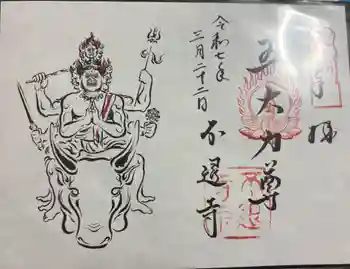 奉拝
五大力尊
令和七年
三月二十二日
不退寺